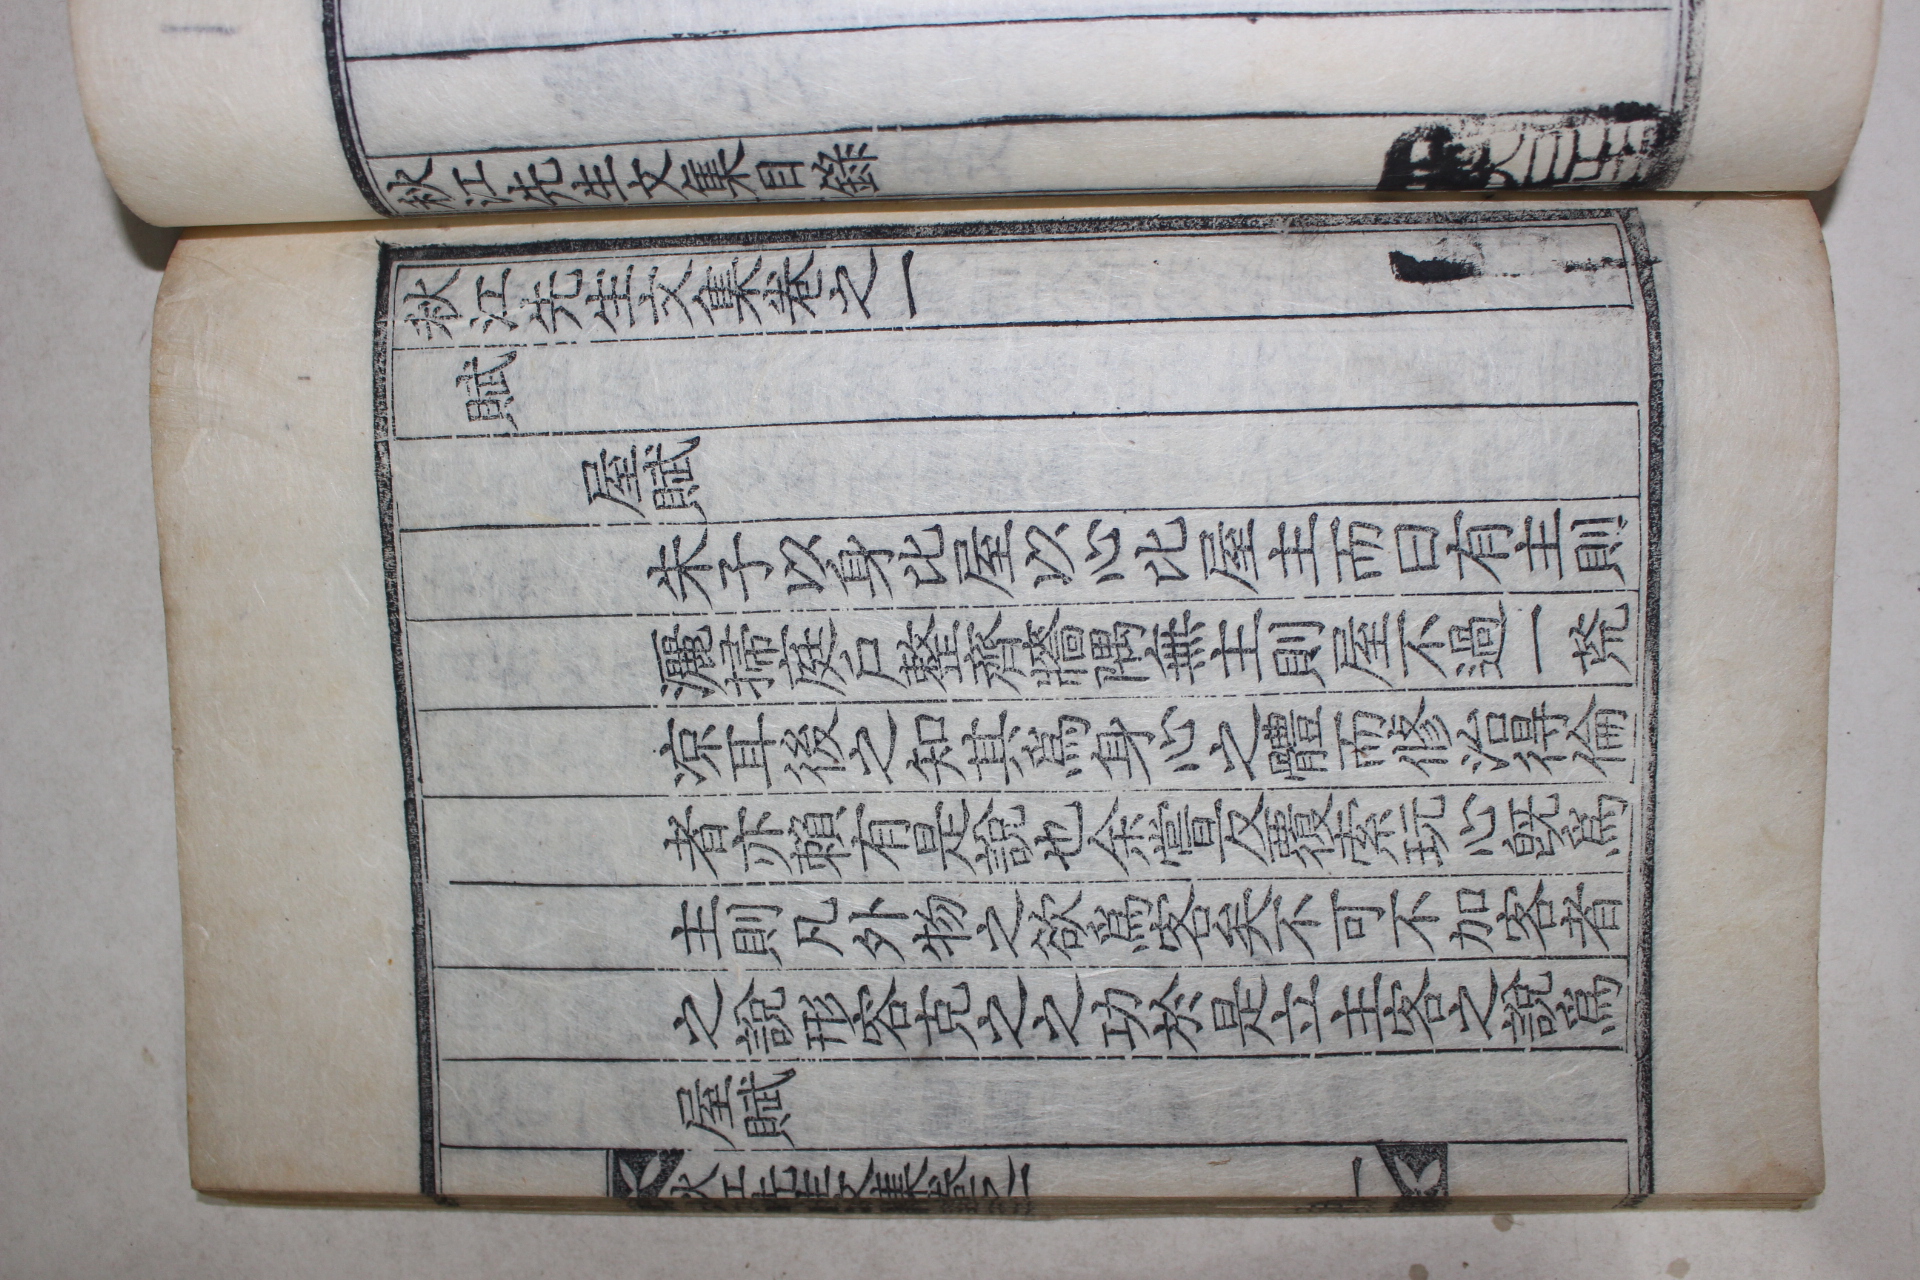 秋江先生文集目錄
秋江先生文集卷之一
賦
屋賦
朱子以身比屋以心比屋主而曰有主則
灑掃庭戶整齊墻隅無主則屋不過一荒
凉耳後之知其爲身心之體而修治得倫
者亦賴有是說也余嘗反覆索玩心旣爲
主則凡外物之欲爲客矣不可不加客者
之說形容克之之功於是立主客之說爲
屋賦
秋江先生文集卷之一 一